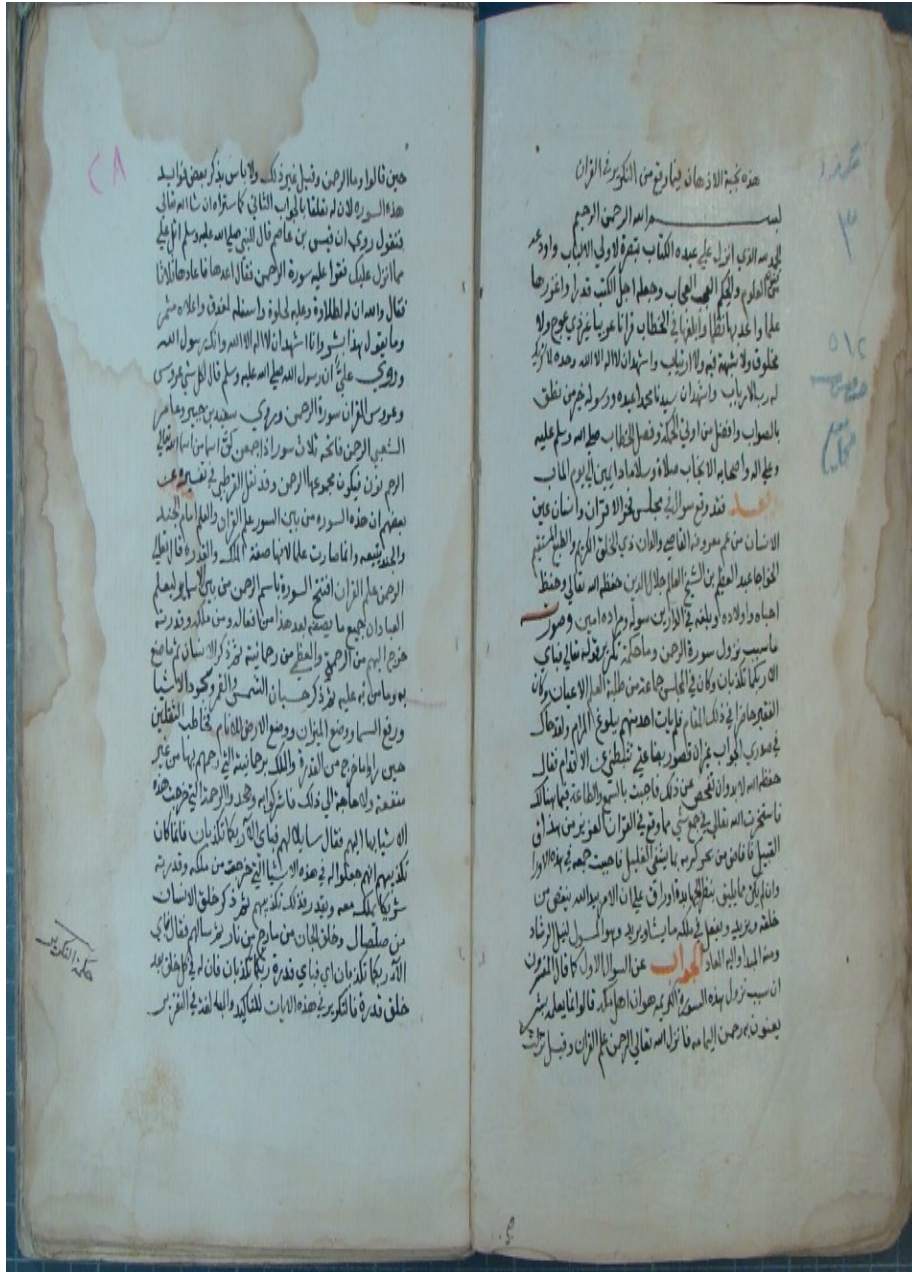 هذه نخبة الاذهان فيما وقع من التكرير في القران
بسم الله الرحمن الرحيم
الحمد لله الذي انزل علي عبده الكتاب تبصرة لاولي الالباب واودعه
من العلوم والحكم العجب العجاب وجعله اجل الكتب قدرا واغزرها
علما واعذبها نظما وابلغها في الخطاب قرانا عربيا غير ذي عوج ولا
مخلوق ولا شبهة فيه ولا ارتياب واشهد ان لا اله الا الله وحده لا شريك
له رب الارباب واشهد ان سيدنا محمدا عبده ورسوله خير من نطق
بالصواب وافضل من اولي الحكمة وفصل الخطاب صلي الله وسلم عليه
وعلي اله واصحابه الانجاب صلاة وسلاما دايمين الي يوم الماب
وبعد فقد وقع سوال في مجلس فخر الاقران وانسان عين
الانسان من عم معروفه القاصي والدان ذي الخلق الكريم والطبع المستقيم
الخواجا عبد العظيم بن الشيخ العالم جلال الدين حفظه الله تعالي وحفظ
احباه واولاده وبلغه في الدارين سوله ومراده امين وصورته
ما سبب نزول سورة الرحمن وما حكمة تكرير قوله تعالي فباي
الاء ربكما تكذبان وكان في المجلس جماعة من طلبة العلم الاعيان وكان
الفقير حاضرا في ذلك المقام فلم يات احد منهم ببلوغ المرام ولقد حاك
في صدري الجواب غير ان قصور باعي تثبطني عن الاقدام فقال
حفظه الله لا بد وان تفحص عن ذلك فاجبت بالسمع والطاعة فيما هنالك
فاستخرت الله تعالي في جمع شي مما وقع في القران العزيز من هذا
القبيل فافاض من بحر كرمه ما يشفي الغليل فاحببت جمعه في هذه الاوراق
وان لم يكن مما يليق بنظر الجهابذة اوراق علي ان الامر بيد الله ينقص من
خلقه ويزيد ويفعل في ملكه ما يشا ويريد وهو المسول لنيل الرشاد
ومنه المبدا واليه المعاد الجواب عن السوال الاول كما قال المفسرون
ان سبب نزول هذه السورة الكريمة هو ان اهل مكة قالوا انما يعلمه بشر
يعنون به رحمن اليمامه فانزل الله تعالي الرحمن علم القران وقيل نزلت
٣
٥١٢
حين قالوا وما الرحمن وقيل غير ذلك ولا باس بذكر بعض فوايد
هذه السوره لان له تعلقا بالجواب الثاني كما ستراه ان شا الله تعالي
فنقول روي ان قيس بن عاصم قال للنبي صلي الله عليه وسلم اتل علي
مما انزل عليك فقرا عليه سورة الرحمن فقال اعدها فاعادها ثلاثا
فقال والله ان له لطلاوة وعليه لحلاوة واسفله لمغدق واعلاه مثمر
وما يقول هذا بشر وانا اشهد ان لا اله الا الله وانك رسول الله
وروي علي ان رسول الله صلي الله عليه وسلم قال لكل شي عروس
وعروس القران سورة الرحمن وروي سعيد بن جبير وعامر
الشعبي الرحمن فاتحة ثلاث سور اذا جمعن كن اسما من اسما الله تعالي
الر حم ن فيكون مجموعها الرحمن وقد نقل القرطبي في تفسيره عن
بعضهم ان هذه السوره من بين السور علم القران والعلم امام الجند
والجند يتبعه وانما صارت علما لانها صفة الملك والقدرة قال تعالي
الرحمن علم القران افتتح السورة باسم الرحمن من بين الاسما ليعلم
العباد ان جميع ما يصفه بعد هذا من افعاله ومن ملكه وقدرته
خرج اليهم من الرحمة والعظمي من رحمانيته ثم ذكر الانسان ثم ما صنع
به وما من به عليه ثم ذكر حسبان الشمس والقمر وسجود الاشيا
ورفع السما ووضع الميزان ووضع الارض للانام فخاطب الثقلين
حين راوا ما خرج من القدرة والملك برحمانيته التي رحمهم بها من غير
منفعة ولا حاجة الي ذلك فاشركوا به وجحدوا الرحمة التي خرجت هذه
الاشيا بها اليهم فقال سايلا لهم فباي الاء ربكما تكذبان فانما كان
تكذيبهم انهم جعلوا له في هذه الاشيا التي خرجت من ملكه وقدرته
شريكا يملك معه ويقدر فذلك تكذيبهم ثم ذكر خلق الانسان
من صلصال وخلق الجان من مارج من نار ثم سالهم فقال فباي
الاء ربكما تكذبان اي فباي قدرة ربكما تكذبان فان له في كل خلق بعد
خلق قدرة فالتكرير في هذه الايات للتاكيد والمبالغة في التقرير
حكمة التكرير
٢٨